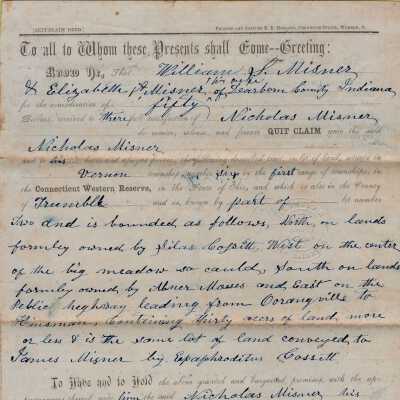 [QUIT-CLAIM DEED]
To all to Whom these Presents shall Come--Greeting:
Know Ye, That William S. Misner
& Elizabeth Misner, his wife of Dearborn County Indiana
for the consideration of fifty
Dollars, received to their full satisfaction of Nicholas Misner
do remise, release, and forever QUIT CLAIM unto the said
Nicholas Misner
his
Vernon township number six in the first range of townships, in
the Connecticut Western Reserve, in the State of Ohio, and which is also in the County
of Trumble and is known by part of lot number
two and is bounded as follows, North, on lands
formley owned by Silas Cossitt, West on the center
of the big meadow so cauld, South on lands
formley owned, by Abner Moses and, East on the
Public heghway leading from Oorangville to
Kinsman, Containing thirty acors of land, more
or less & is the same lot of land conveyed to
James Misner by Epaphroditus Cossitt
To Have and to Hold the above granted and bargained premises, with the
unto Nicholas Misner his